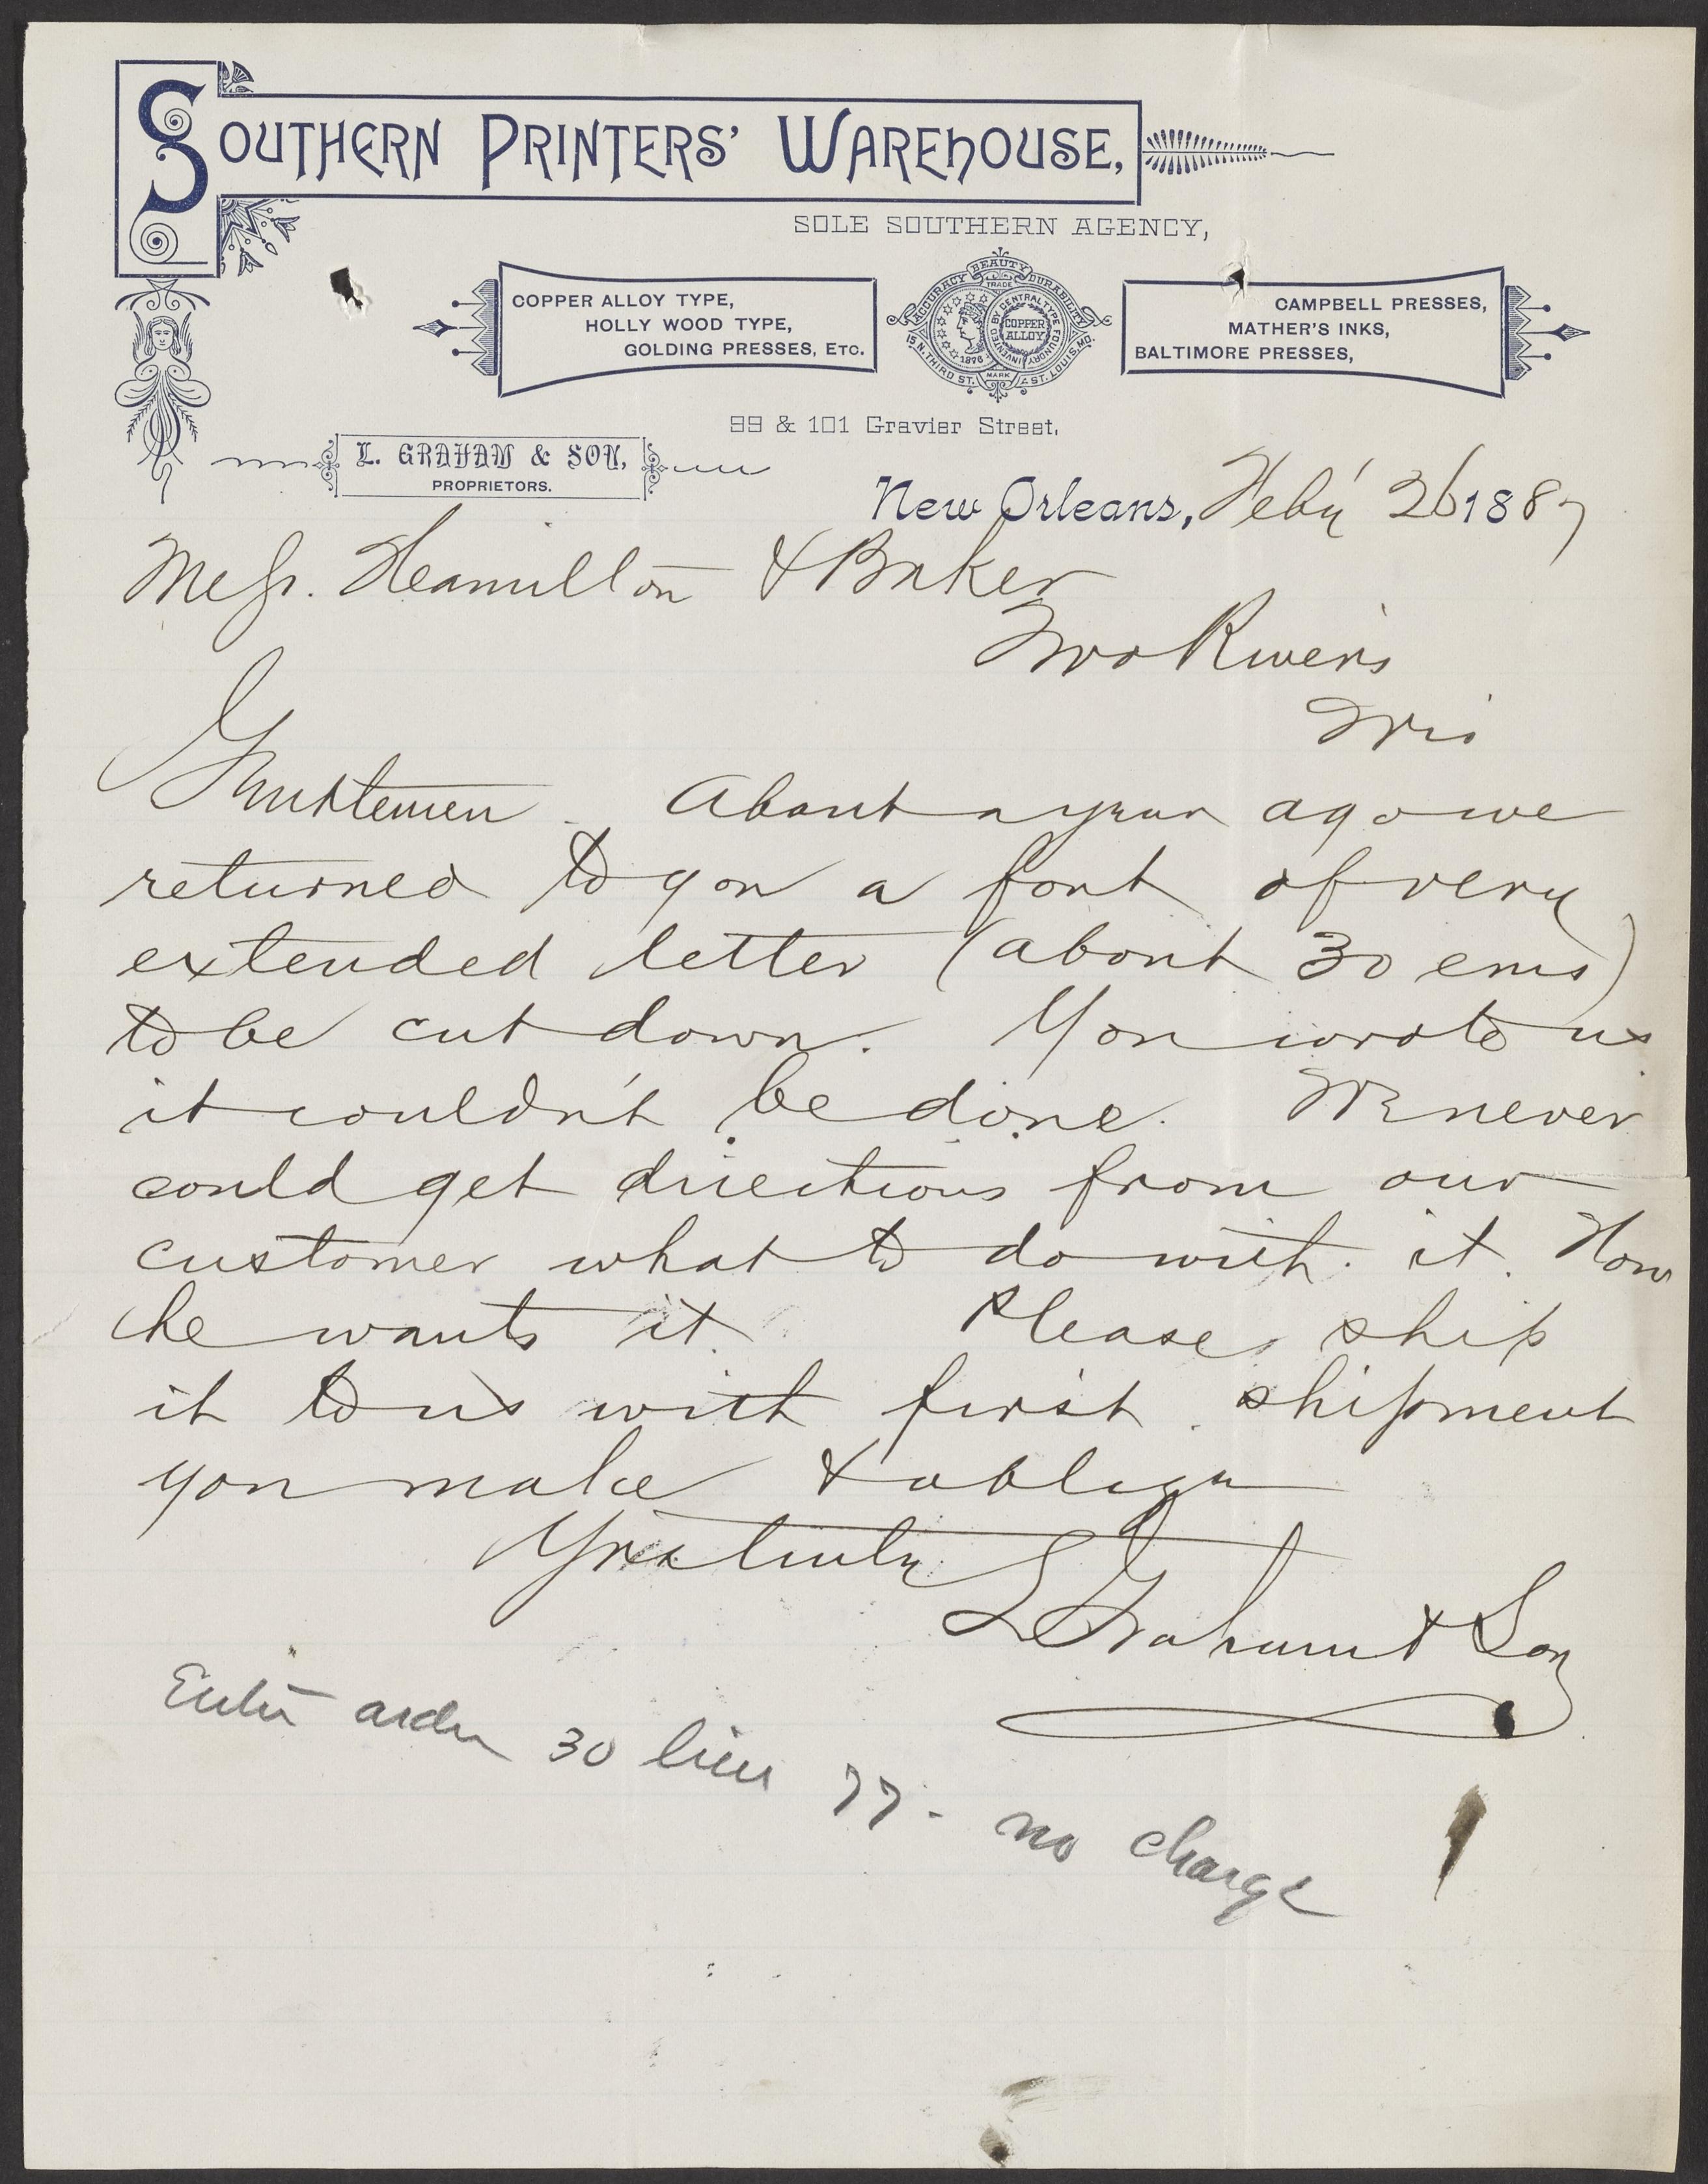 SOUTHERN PRINTERS' WAREHOUSE,
SOLE SOUTHERN AGENCY,
COPPER ALLOY TYPE,
HOLLY WOOD TYPE,
GOLDING PRESSES, ETC.
ACCURACY BEAUTY DURABILITY
TRADE
INVENTED BY CENTRAL TYPE FOUNDRY
COPPER
ALLOY
1876
MARK
15 N. THIRD ST. ST. LOUIS, MO.
CAMPBELL PRESSES,
MATHER'S INKS,
BALTIMORE PRESSES,
99 & 101 Gravier Street,
L. GRAHAM & SON,
PROPRIETORS.
New Orleans, Feby' 26 1887
Messr. Hamilton & Baker
Two Rivers
Wis
Gentlemen. About a year ago we
returned to you a font of very
extended letter (about 30 ems)
to be cut down. You wrote us
it couldn't be done. We never
could get directions from our
customer what to do with it. Now
he wants it. Please ship
it to us with first shipment
you make & oblige
Yrs truly
L Graham & Son
Enter order 30 line 77 - no charge